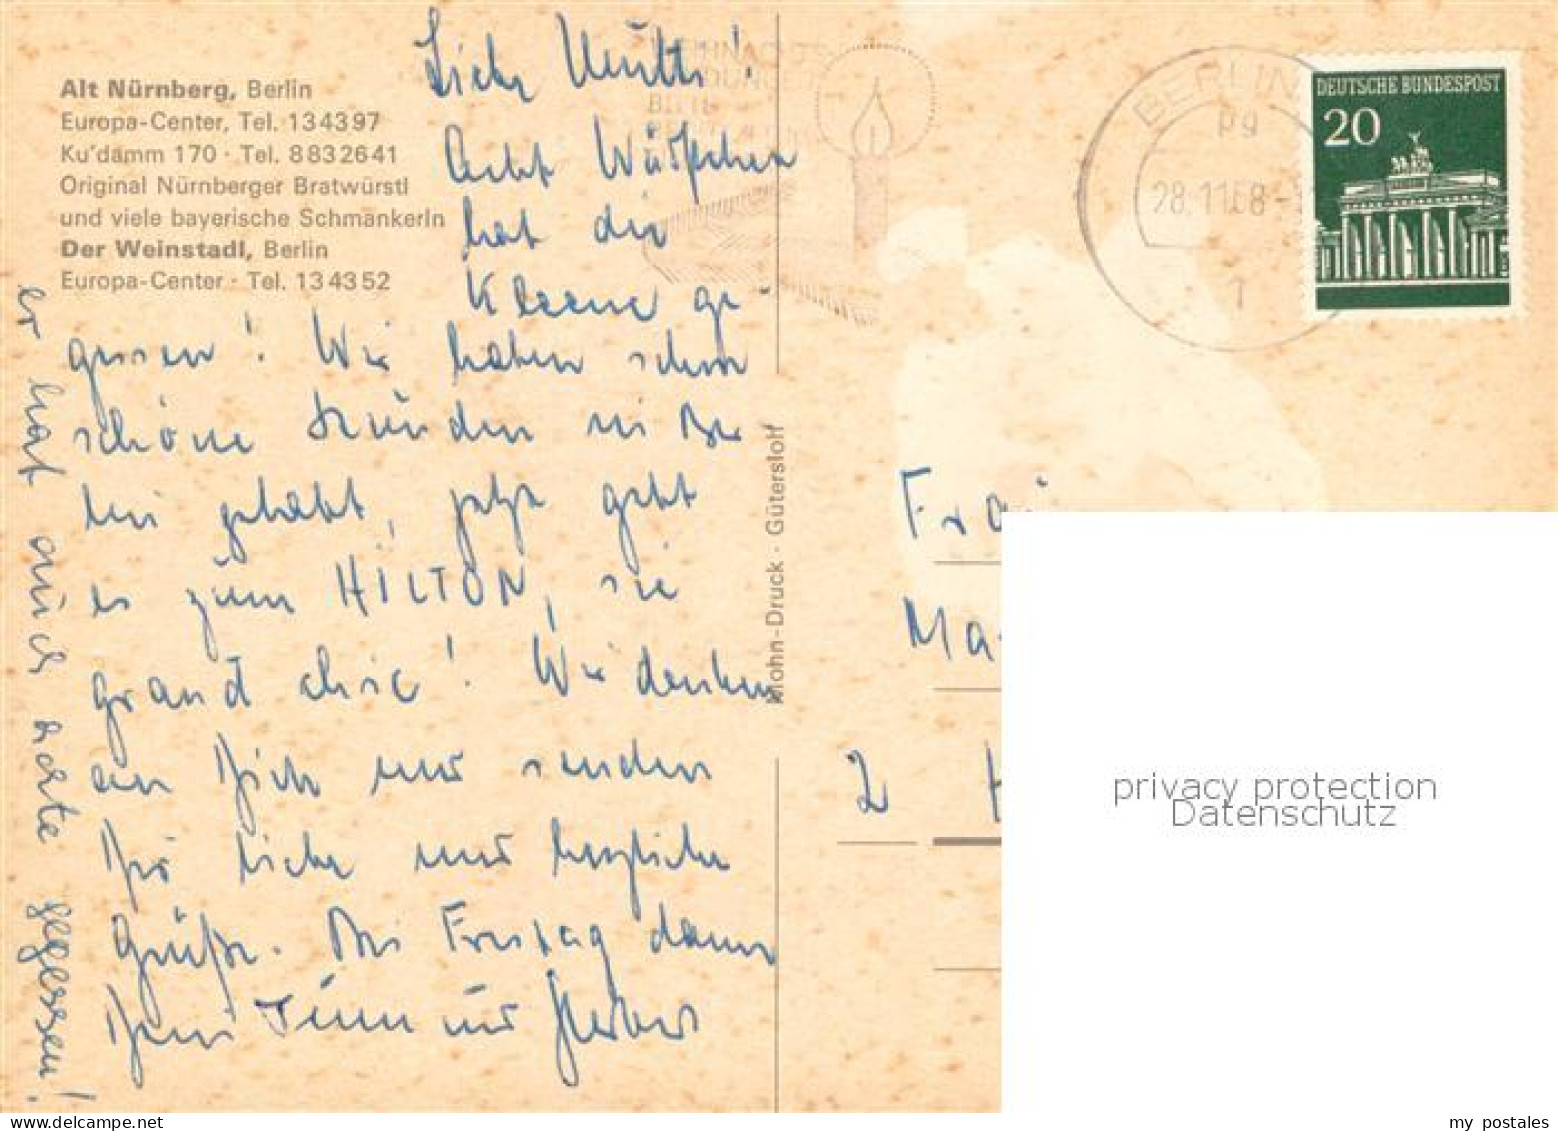 Alt Nürnberg, Berlin
Europa-Center, Tel. 134397
Ku'damm 170 · Tel. 8832641
Original Nürnberger Bratwürstl
und viele bayerische Schmankerln
Der Weinstadl, Berlin
Europa-Center · Tel. 134352
Liebe Mutti!
Acht Würstchen
hat die
Kleene ge-
gessen! Wir haben schon
schöne Stunden in Ber
lin gehabt, jetzt geht
es zum HILTON, sie
grand chic! Wir denken
an Dich und senden
Dir liebe und herzliche
Grüße. Bis Freitag dann
Dein und Herbert
er hat auch achte gegessen!
Mohn-Druck · Gütersloh
WEIHNACHTS
BITTE
BERLIN
28.11.68
1
DEUTSCHE BUNDESPOST
20
Frau
Ma
2 H
privacy protection
Datenschutz
my postales